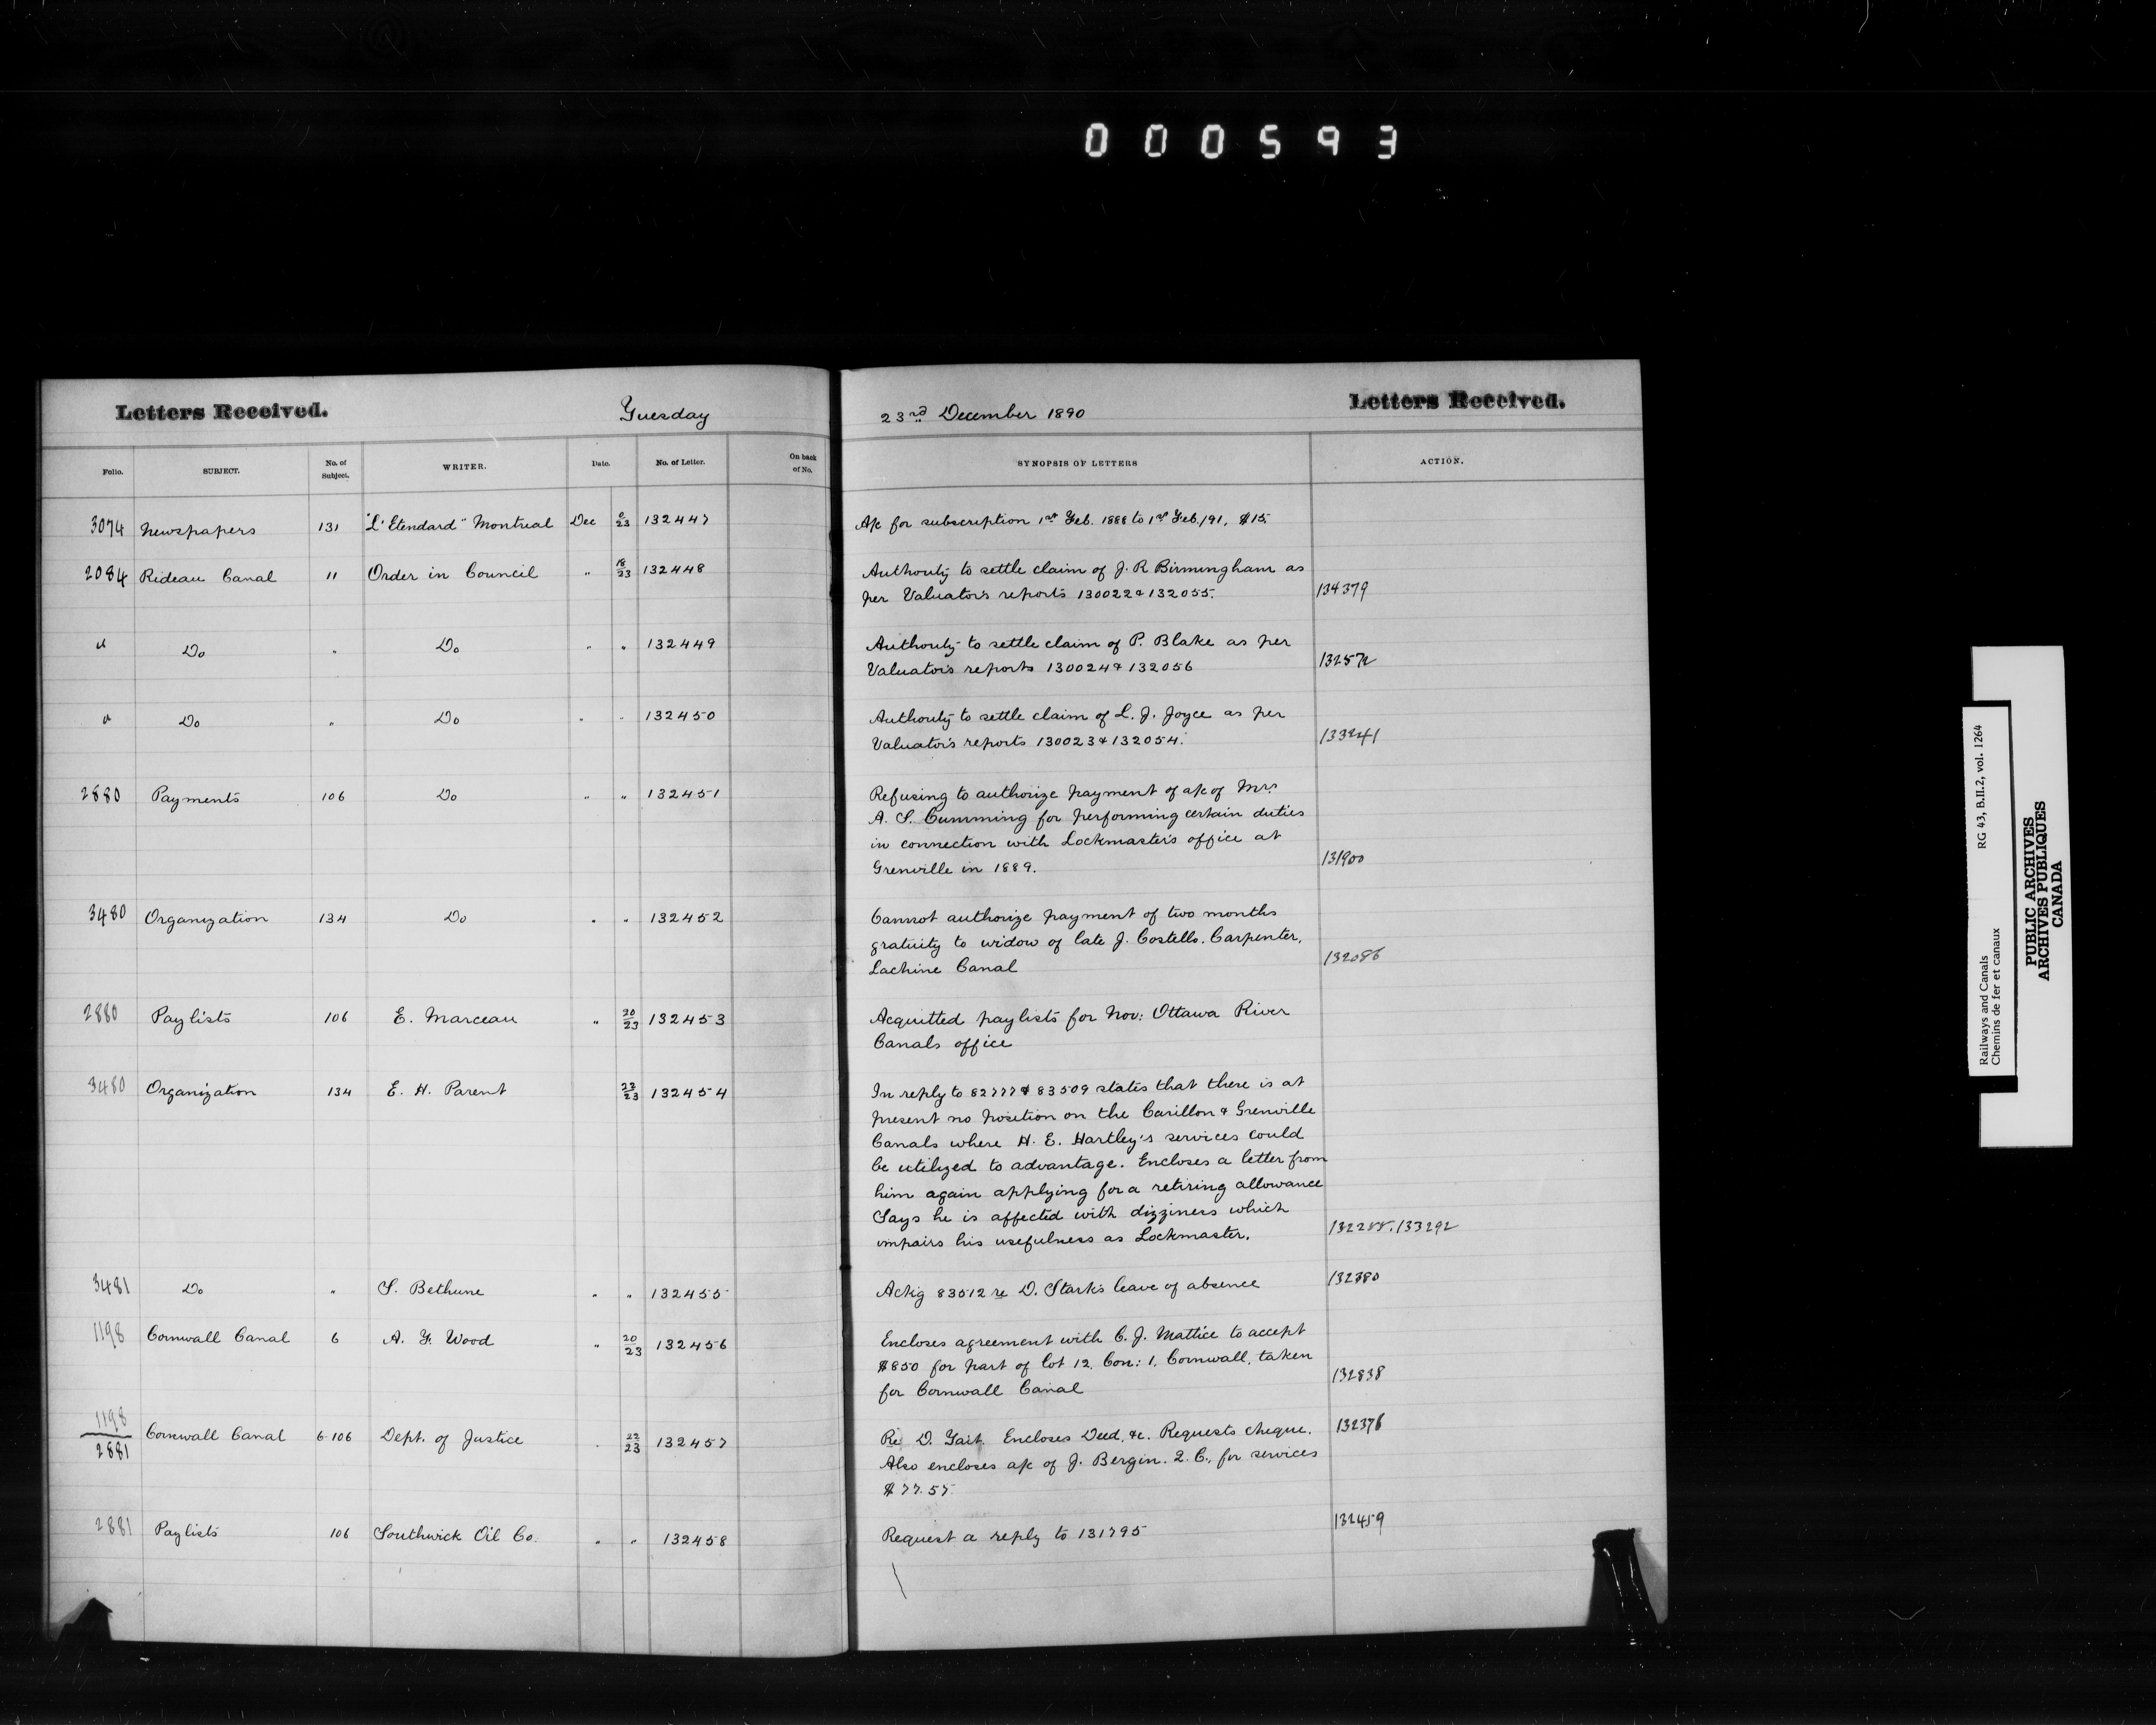 000593
Letters Received. Tuesday 23rd December 1890 Letters Received.
Folio. SUBJECT. No. of Subject. WRITER. Date. No. of Letter. On back of No. SYNOPSIS OF LETTERS ACTION.
3074 Newspapers 131 "L'Etendard" Montreal Dec 23 132447 A/c for subscription 1st Feb. 1888 to 1st Feb./91, $15.
2084 Rideau Canal 11 Order in Council " 18/23 132448 Authority to settle claim of J. R Birmingham as
per Valuator's reports 130022 & 132055. 134379
" Do " Do " " 132449 Authority to settle claim of P. Blake as per
Valuator's reports 130024 & 132056 132572
" Do " Do " " 132450 Authority to settle claim of L. J. Joyce as per
Valuator's reports 130023 & 132054. 133241
2880 Payments 106 Do " " 132451 Refusing to authorize payment of a/c of Mrs
A. S. Cumming for performing certain duties
in connection with Lockmaster's office at
Grenville in 1889. 131900
3480 Organization 134 Do " " 132452 Cannot authorize payment of two months
gratuity to widow of late J. Costello. Carpenter,
Lachine Canal 132086
2880 Paylists 106 E. Marceau " 20/23 132453 Acquitted paylists for Nov: Ottawa River
Canals office
3480 Organization 134 E. H. Parent 22/23 132454 In reply to 82777 & 83509 states that there is at
present no position on the Carillon & Grenville
Canals where H. E. Hartley's services could
be utilized to advantage. Encloses a letter from
him again applying for a retiring allowance
Says he is affected with dizziness which
impairs his usefulness as Lockmaster. 133292
3481 Do " S. Bethune " " 132455 Ackg 83512 re D. Stark's leave of absence 132380
1198 Cornwall Canal 6 A. F. Wood " 20/23 132456 Encloses agreement with C. J. Mattice to accept
$850 for part of lot 12, Con: 1, Cornwall, taken
for Cornwall Canal 132838
1198/2881 Cornwall Canal 6-106 Dept. of Justice " 22/23 132457 Re D. Tait. Encloses Deed, &c. Requests cheque. 132376
Also encloses a/c of J. Bergin. Q. C., for services
$77.57.
2881 Paylists 106 Southwick Oil Co. " " 132458 Request a reply to 131795 132459
Railways and Canals RG 43, B.II.2, vol. 1264
Chemins de fer et canaux
PUBLIC ARCHIVES
ARCHIVES PUBLIQUES
CANADA